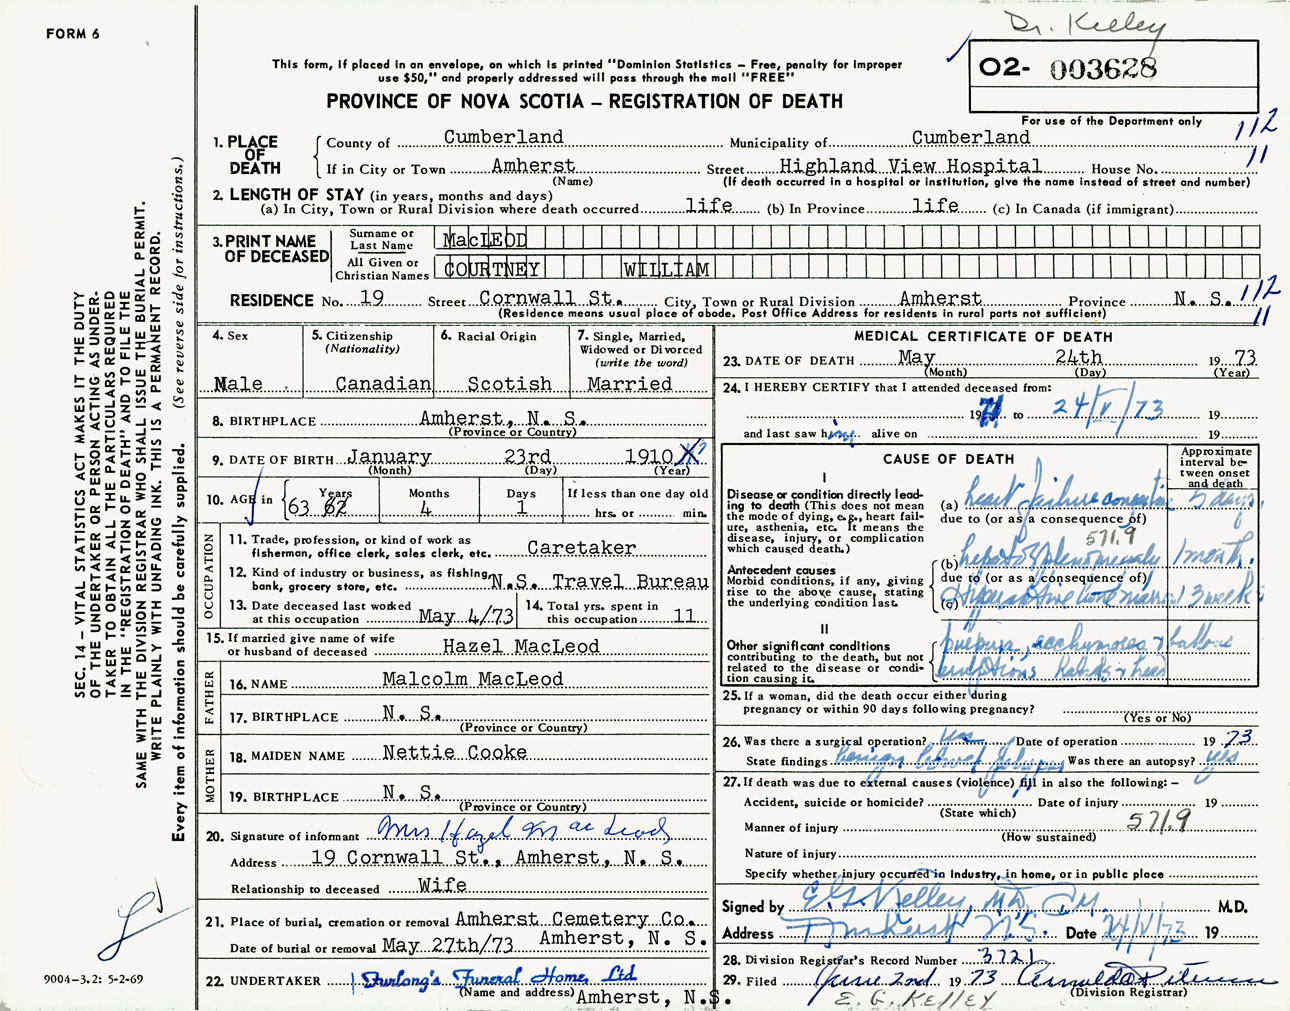 Dr. Kelley
FORM 6
This form, if placed in an envelope, on which is printed "Dominion Statistics – Free, penalty for improper
use $50," and properly addressed will pass through the mail "FREE"
O2- 003628
PROVINCE OF NOVA SCOTIA – REGISTRATION OF DEATH
For use of the Department only
112
11
1. PLACE OF DEATH
County of Cumberland Municipality of Cumberland
If in City or Town Amherst Street Highland View Hospital House No.
(Name) (If death occurred in a hospital or institution, give the name instead of street and number)
2. LENGTH OF STAY (in years, months and days)
(a) In City, Town or Rural Division where death occurred life (b) In Province life (c) In Canada (if immigrant)
3. PRINT NAME OF DECEASED
Surname or Last Name MacLEOD
All Given or Christian Names COURTNEY WILLIAM
RESIDENCE No. 19 Street Cornwall St. City, Town or Rural Division Amherst Province N. S. 112
(Residence means usual place of abode. Post Office Address for residents in rural parts not sufficient) 11
4. Sex
Male
5. Citizenship
(Nationality)
Canadian
6. Racial Origin
Scotish
7. Single, Married,
Widowed or Divorced
(write the word)
Married
8. BIRTHPLACE Amherst, N. S.
(Province or Country)
9. DATE OF BIRTH January 23rd 1910
(Month) (Day) (Year)
10. AGE in
Years 63 62
Months 4
Days 1
If less than one day old
hrs. or min.
OCCUPATION
11. Trade, profession, or kind of work as
fisherman, office clerk, sales clerk, etc. Caretaker
12. Kind of industry or business, as fishing,
bank, grocery store, etc. N.S. Travel Bureau
13. Date deceased last worked
at this occupation May 4/73
14. Total yrs. spent in
this occupation 11
15. If married give name of wife
or husband of deceased Hazel MacLeod
FATHER
16. NAME Malcolm MacLeod
17. BIRTHPLACE N. S.
(Province or Country)
MOTHER
18. MAIDEN NAME Nettie Cooke
19. BIRTHPLACE N. S.
(Province or Country)
20. Signature of informant Mrs Hazel MacLeod
Address 19 Cornwall St., Amherst, N. S.
Relationship to deceased Wife
21. Place of burial, cremation or removal Amherst Cemetery Co.
Date of burial or removal May 27th/73 Amherst, N. S.
22. UNDERTAKER Furlong's Funeral Home Ltd
(Name and address) Amherst, N.S.
MEDICAL CERTIFICATE OF DEATH
23. DATE OF DEATH May 24th 19 73
(Month) (Day) (Year)
24. I HEREBY CERTIFY that I attended deceased from:
19 to 24/V/73 19
and last saw him alive on 19
CAUSE OF DEATH
Approximate
interval be-
tween onset
and death
I
Disease or condition directly lead-
ing to death (This does not mean
the mode of dying, e.g., heart fail-
ure, asthenia, etc. It means the
disease, injury, or complication
which caused death.)
(a) heart failure congestive 5 days
due to (or as a consequence of)
571.9
Antecedent causes
Morbid conditions, if any, giving
rise to the above cause, stating
the underlying condition last.
(b) hepatosplenomegaly 1 month.
due to (or as a consequence of)
(c) 3 weeks
II
Other significant conditions
contributing to the death, but not
related to the disease or condi-
tion causing it.
purpura, ecchymoses &
eruptions
25. If a woman, did the death occur either during
pregnancy or within 90 days following pregnancy?
(Yes or No)
26. Was there a surgical operation? yes Date of operation 19 73
State findings benign Was there an autopsy? yes
27. If death was due to external causes (violence) fill in also the following: –
Accident, suicide or homicide? Date of injury 19
(State which)
571.9
Manner of injury
(How sustained)
Nature of injury
Specify whether injury occurred in Industry, in home, or in public place
Signed by E.G. Kelley, MD, CM. M.D.
Address Amherst N.S. Date 24/V/73 19
28. Division Registrar's Record Number 3721
29. Filed June 2nd. 19 73
(Division Registrar)
E. G. KELLEY
SEC. 14 – VITAL STATISTICS ACT MAKES IT THE DUTY
OF THE UNDERTAKER OR PERSON ACTING AS UNDER-
TAKER TO OBTAIN ALL THE PARTICULARS REQUIRED
IN THE "REGISTRATION OF DEATH" AND TO FILE THE
SAME WITH THE DIVISION REGISTRAR WHO SHALL ISSUE THE BURIAL PERMIT.
WRITE PLAINLY WITH UNFADING INK. THIS IS A PERMANENT RECORD.
Every item of information should be carefully supplied. (See reverse side for instructions.)
9004–3.2: 5-2-69